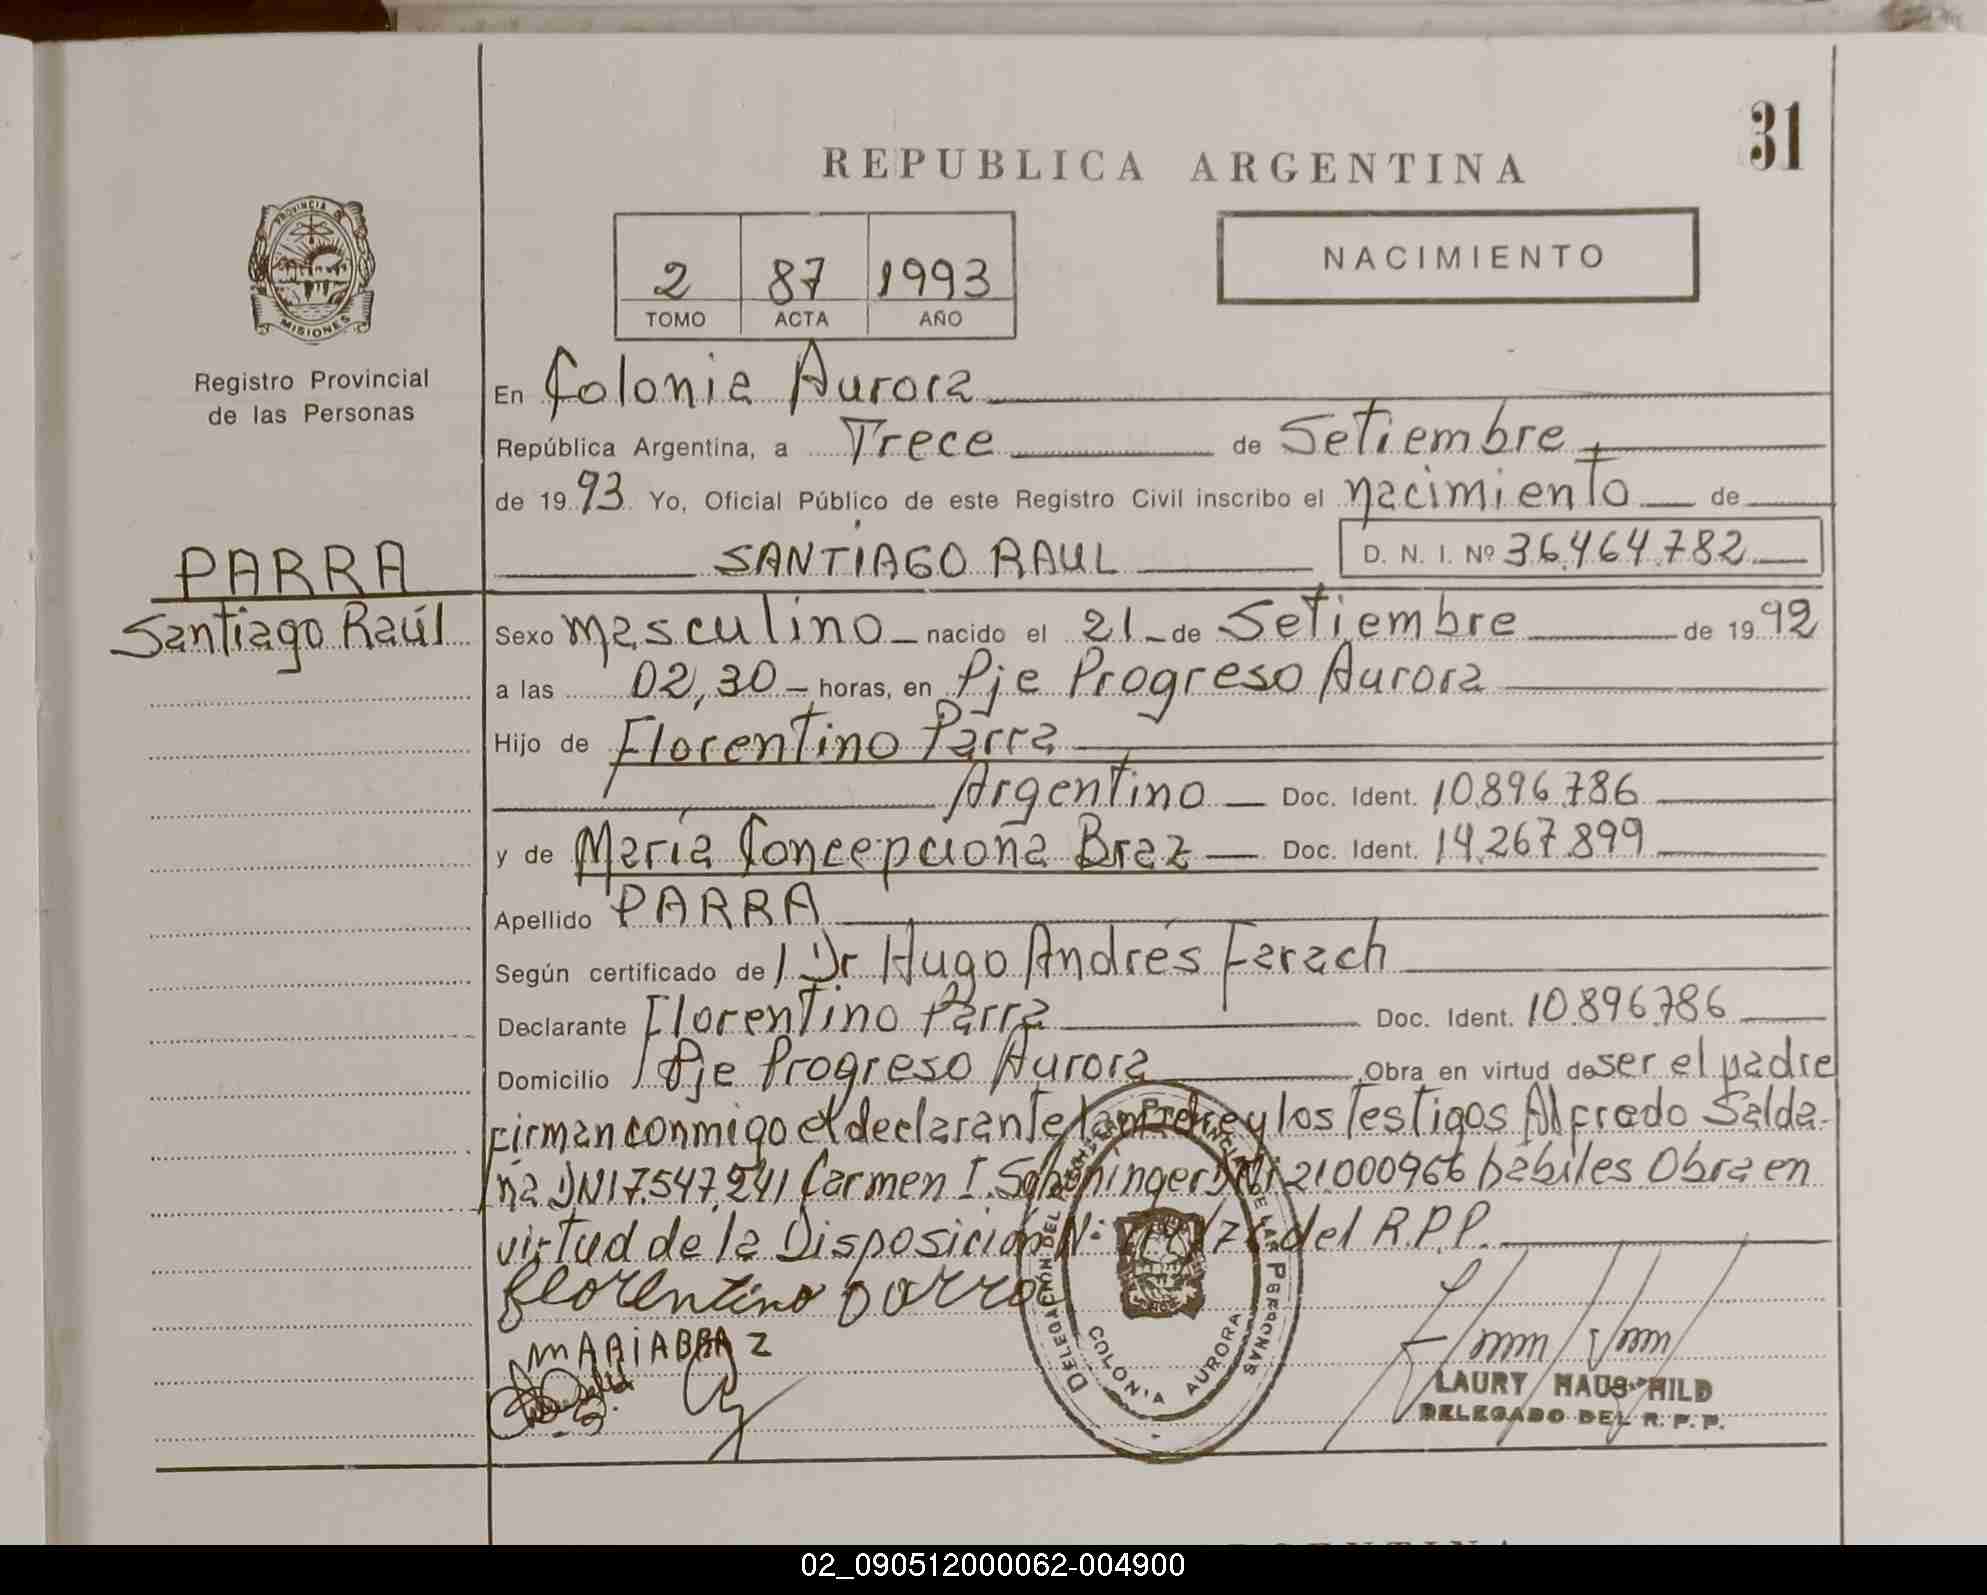 31
REPUBLICA ARGENTINA
PROVINCIA DE
MISIONES
Registro Provincial
de las Personas
2 87 1993
TOMO ACTA AÑO
NACIMIENTO
En Colonia Aurora
República Argentina, a Trece de Setiembre
de 1993 Yo, Oficial Público de este Registro Civil inscribo el nacimiento de
SANTIAGO RAUL D. N. I. Nº 36.464.782
PARRA
Santiago Raúl
Sexo masculino nacido el 21 de Setiembre de 1992
a las 02,30 horas, en Pje Progreso Aurora
Hijo de Florentino Parra
Argentino Doc. Ident. 10.896.786
y de María Concepciona Braz Doc. Ident. 14.267.899
Apellido PARRA
Según certificado de Dr Hugo Andrés Farach
Declarante Florentino Parra Doc. Ident. 10.896.786
Domicilio Pje Progreso Aurora Obra en virtud de ser el padre
firman conmigo el declarante la madre y los Testigos Alfredo Salda-
ña DNI 7.547.241 Carmen I. DNI 21.000966 habiles Obra en
virtud de la Disposición N: del R.P.P.
florentino parra
MARIA BRAZ
DELEGACIÓN DEL REGISTRO PROVINCIAL DE LAS PERSONAS
COLONIA AURORA
LAURY HAUSCHILD
DELEGADO DEL R. P. P.
02_090512000062-004900